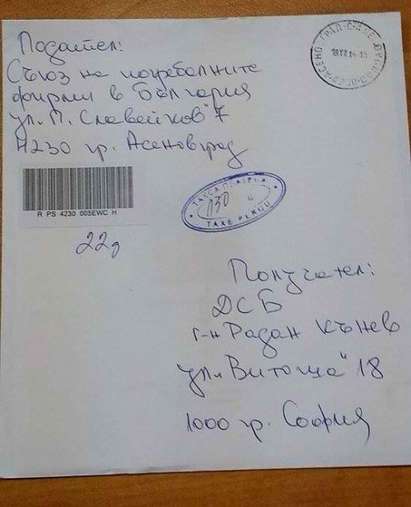 Подател:
Съюз на погребалните
фирми в България
ул. "П. Славейков" 7
4230 гр. Асеновград
R PS 4230 003EWC H
22g
ТАКСА ПЛАТЕНА
130
TAXE PERCUE
Получател:
ДСБ
г-н Радан Кънев
ул. "Витоша" 18
1000 гр. София